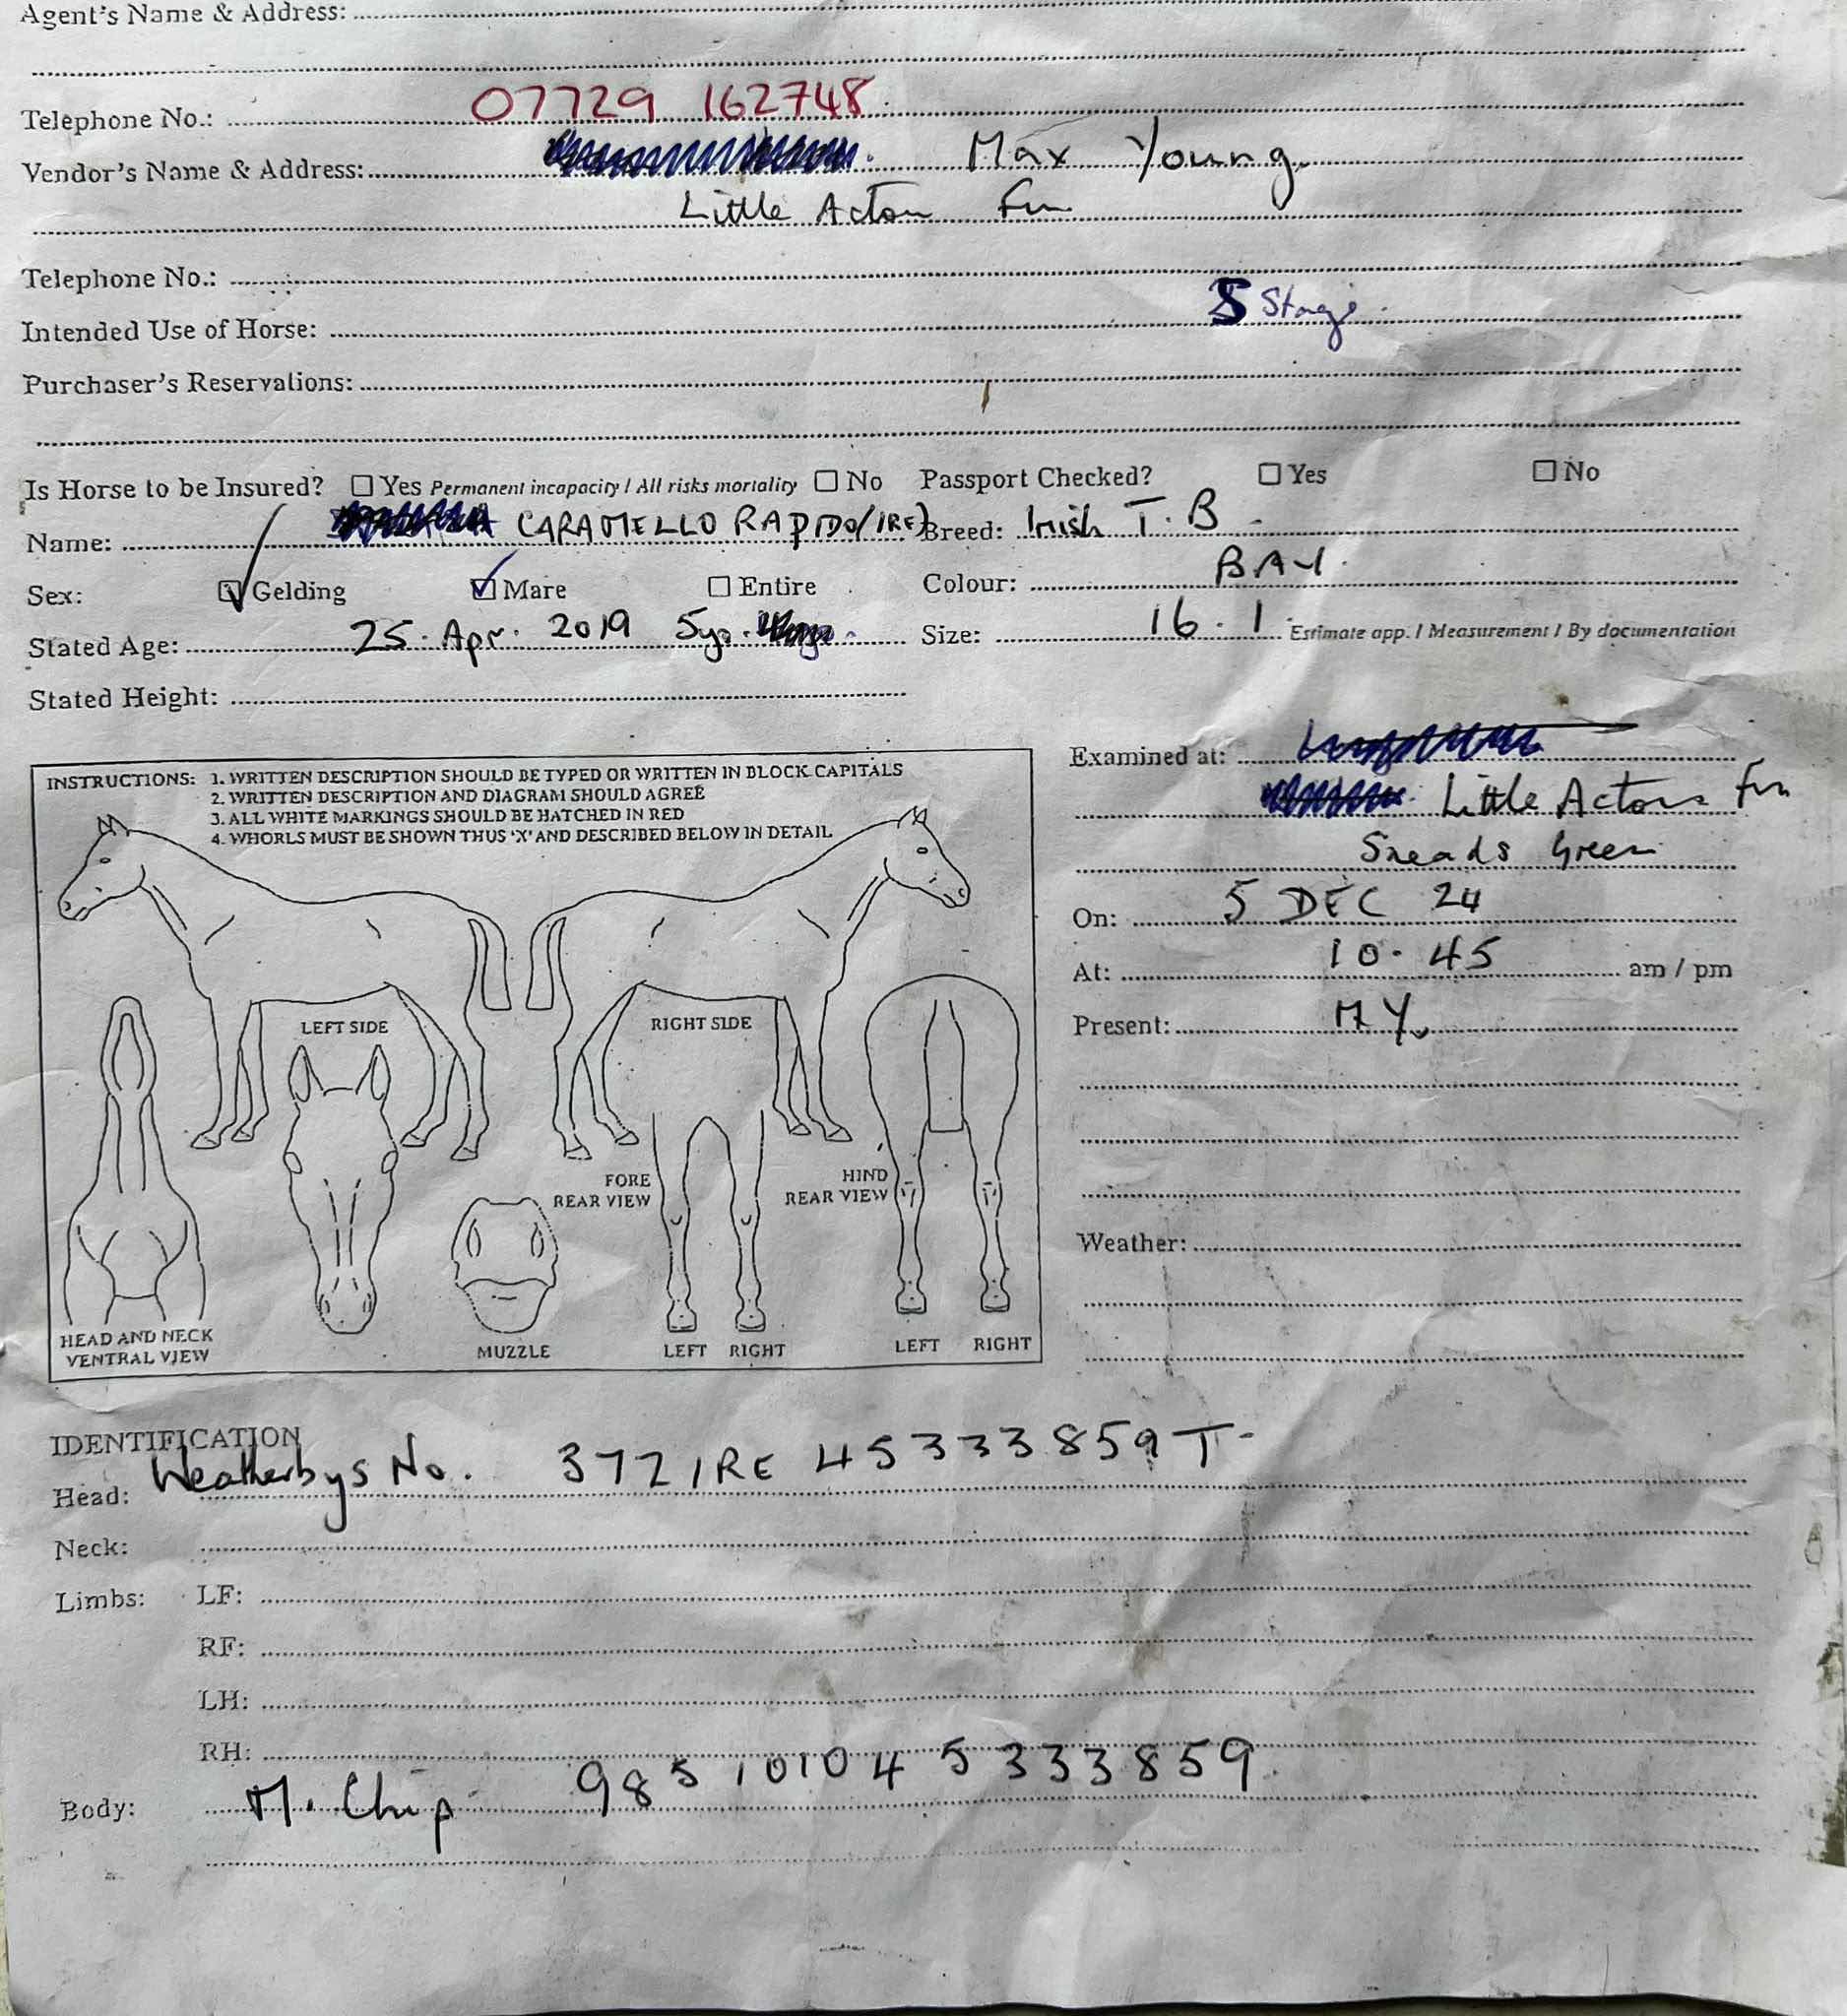 Agent's Name & Address:
Telephone No.: 07729 162748
Vendor's Name & Address: Max Young
Little Acton Fm
Telephone No.:
Intended Use of Horse: 5 Stage
Purchaser's Reservations:
Is Horse to be Insured? Yes Permanent incapacity / All risks mortality No Passport Checked? Yes No
Name: CARAMELLO RAPIDO (IRE) Breed: Irish T.B
Sex: Gelding Mare Entire Colour: BAY
Stated Age: 25. Apr. 2019 5yo. Size: 16.1 Estimate app. / Measurement / By documentation
Stated Height:
INSTRUCTIONS: 1. WRITTEN DESCRIPTION SHOULD BE TYPED OR WRITTEN IN BLOCK CAPITALS
2. WRITTEN DESCRIPTION AND DIAGRAM SHOULD AGREE
3. ALL WHITE MARKINGS SHOULD BE HATCHED IN RED
4. WHORLS MUST BE SHOWN THUS 'X' AND DESCRIBED BELOW IN DETAIL
LEFT SIDE
RIGHT SIDE
FORE
REAR VIEW
HIND
REAR VIEW
HEAD AND NECK
VENTRAL VIEW
MUZZLE
LEFT RIGHT
LEFT RIGHT
Examined at:
Little Acton Fm
Sneads Green
On: 5 DEC 24
At: 10.45 am / pm
Present: MY.
Weather:
IDENTIFICATION
Head: Weatherbys No. 372IRE 45333859T
Neck:
Limbs: LF:
RF:
LH:
RH:
Body: M. Chip 985101045333859